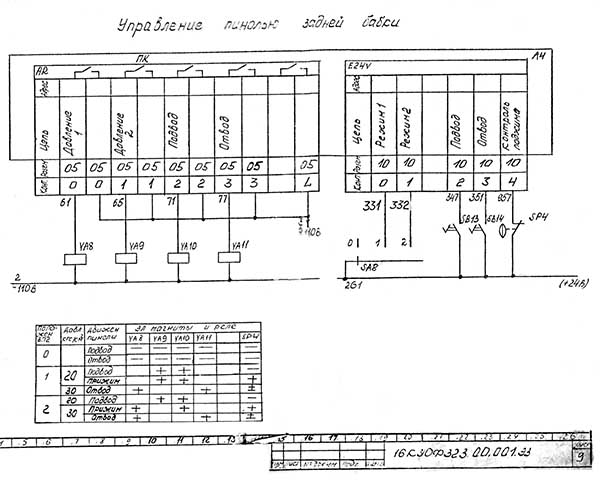 Управление пинолью задней бабки
ПК
А4
AR
E24V
Адрес
Адрес
Цепь
Давление 1
Давление 2
Подвод
Отвод
Цепь
Режим 1
Режим 2
Подвод
Отвод
Контроль поджима
Разъем
05 05 05 05 05 05 05 05 05
Разъем
10 10 10 10 10
Конт.
0 0 1 1 2 2 3 3 L
Конт.
0 1 2 3 4
61 65 71 77
331 332 347 351 857
110В
YA8 YA9 YA10 YA11
0 1 2
SB13 SB14 SP4
SA8
2
-110В
261
(+24В)
Движен пиноли
Эл магниты и реле
YA8 YA9 YA10 YA11 SP4
0 Подвод — — — — —
Отвод — — — — —
1 20 Подвод + + —
Прижим + + +
30 Отвод + + ±
2 20 Подвод + + —
30 Прижим + + +
Отвод + + ±
4 5 6 7 8 9 10 11 12 13 15 16 17 18 19 20 21 22 23 24 25 26
16К30Ф323.00.001.Э3
Лист
9